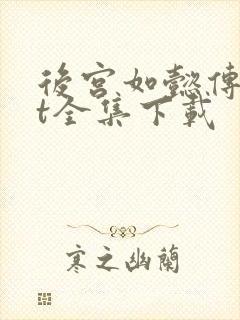 後宫如懿傳
t全集下載
寒之幽蘭